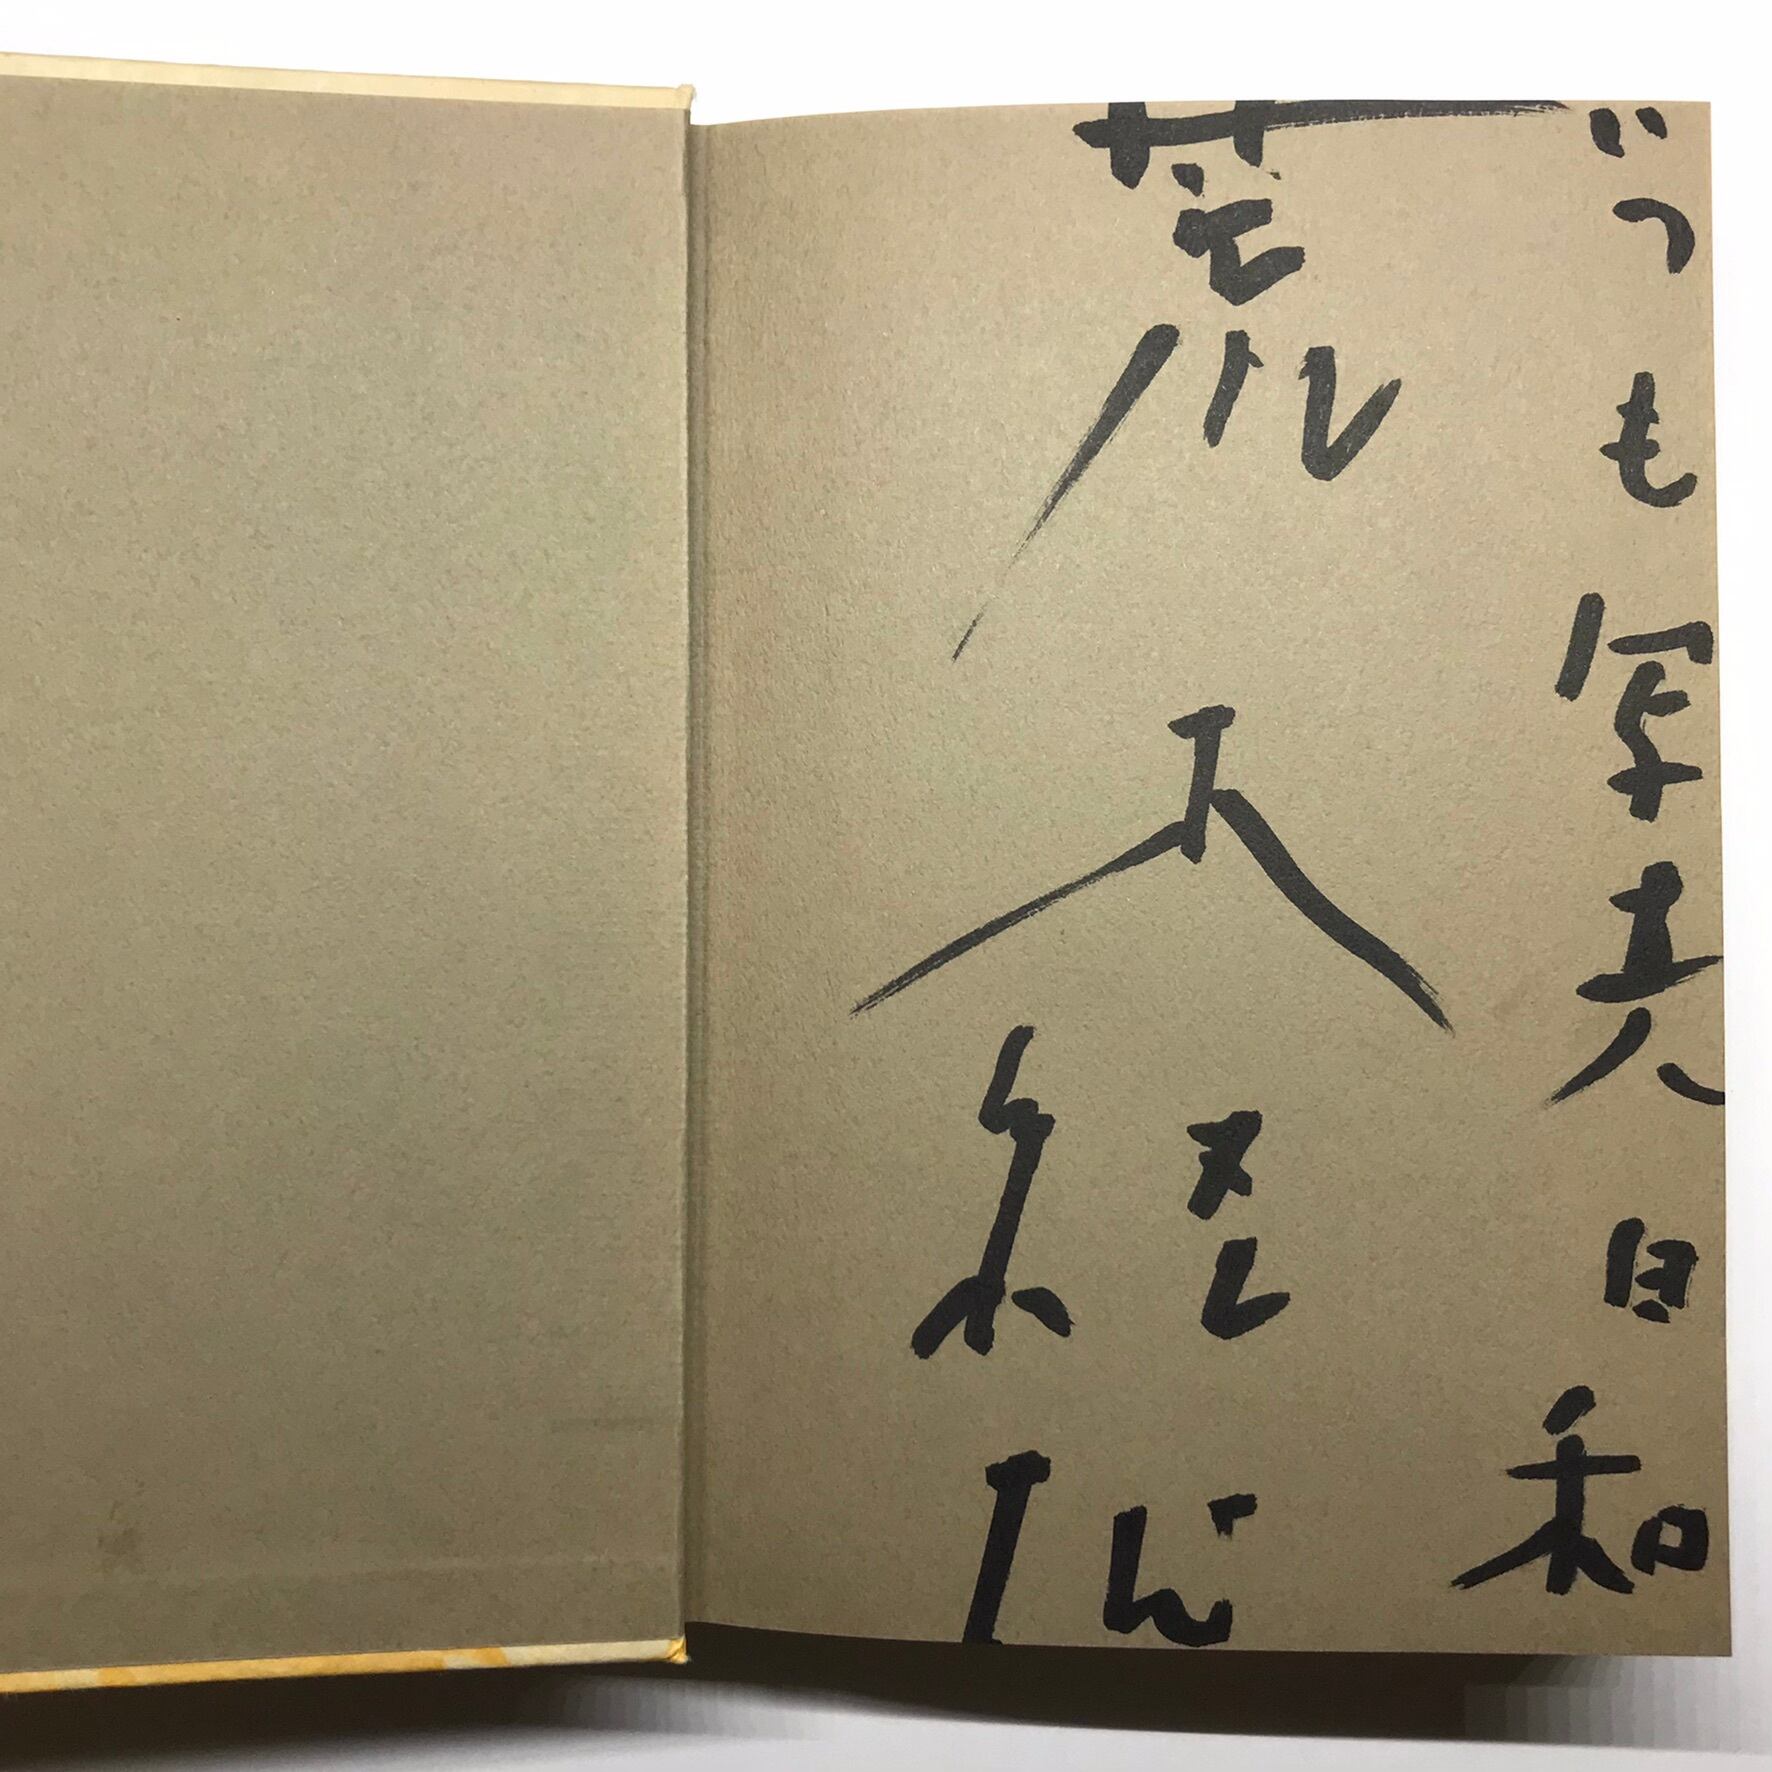 いつも写真日和
荒木経惟